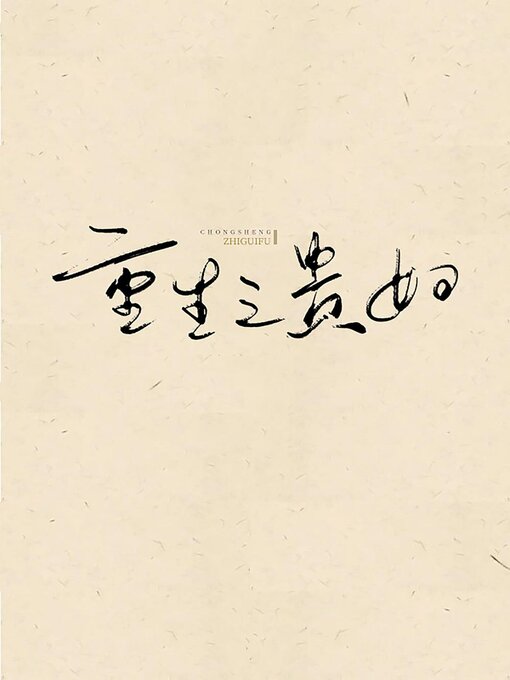 CHONGSHENG
ZHIGUIFU
重生之贵妇